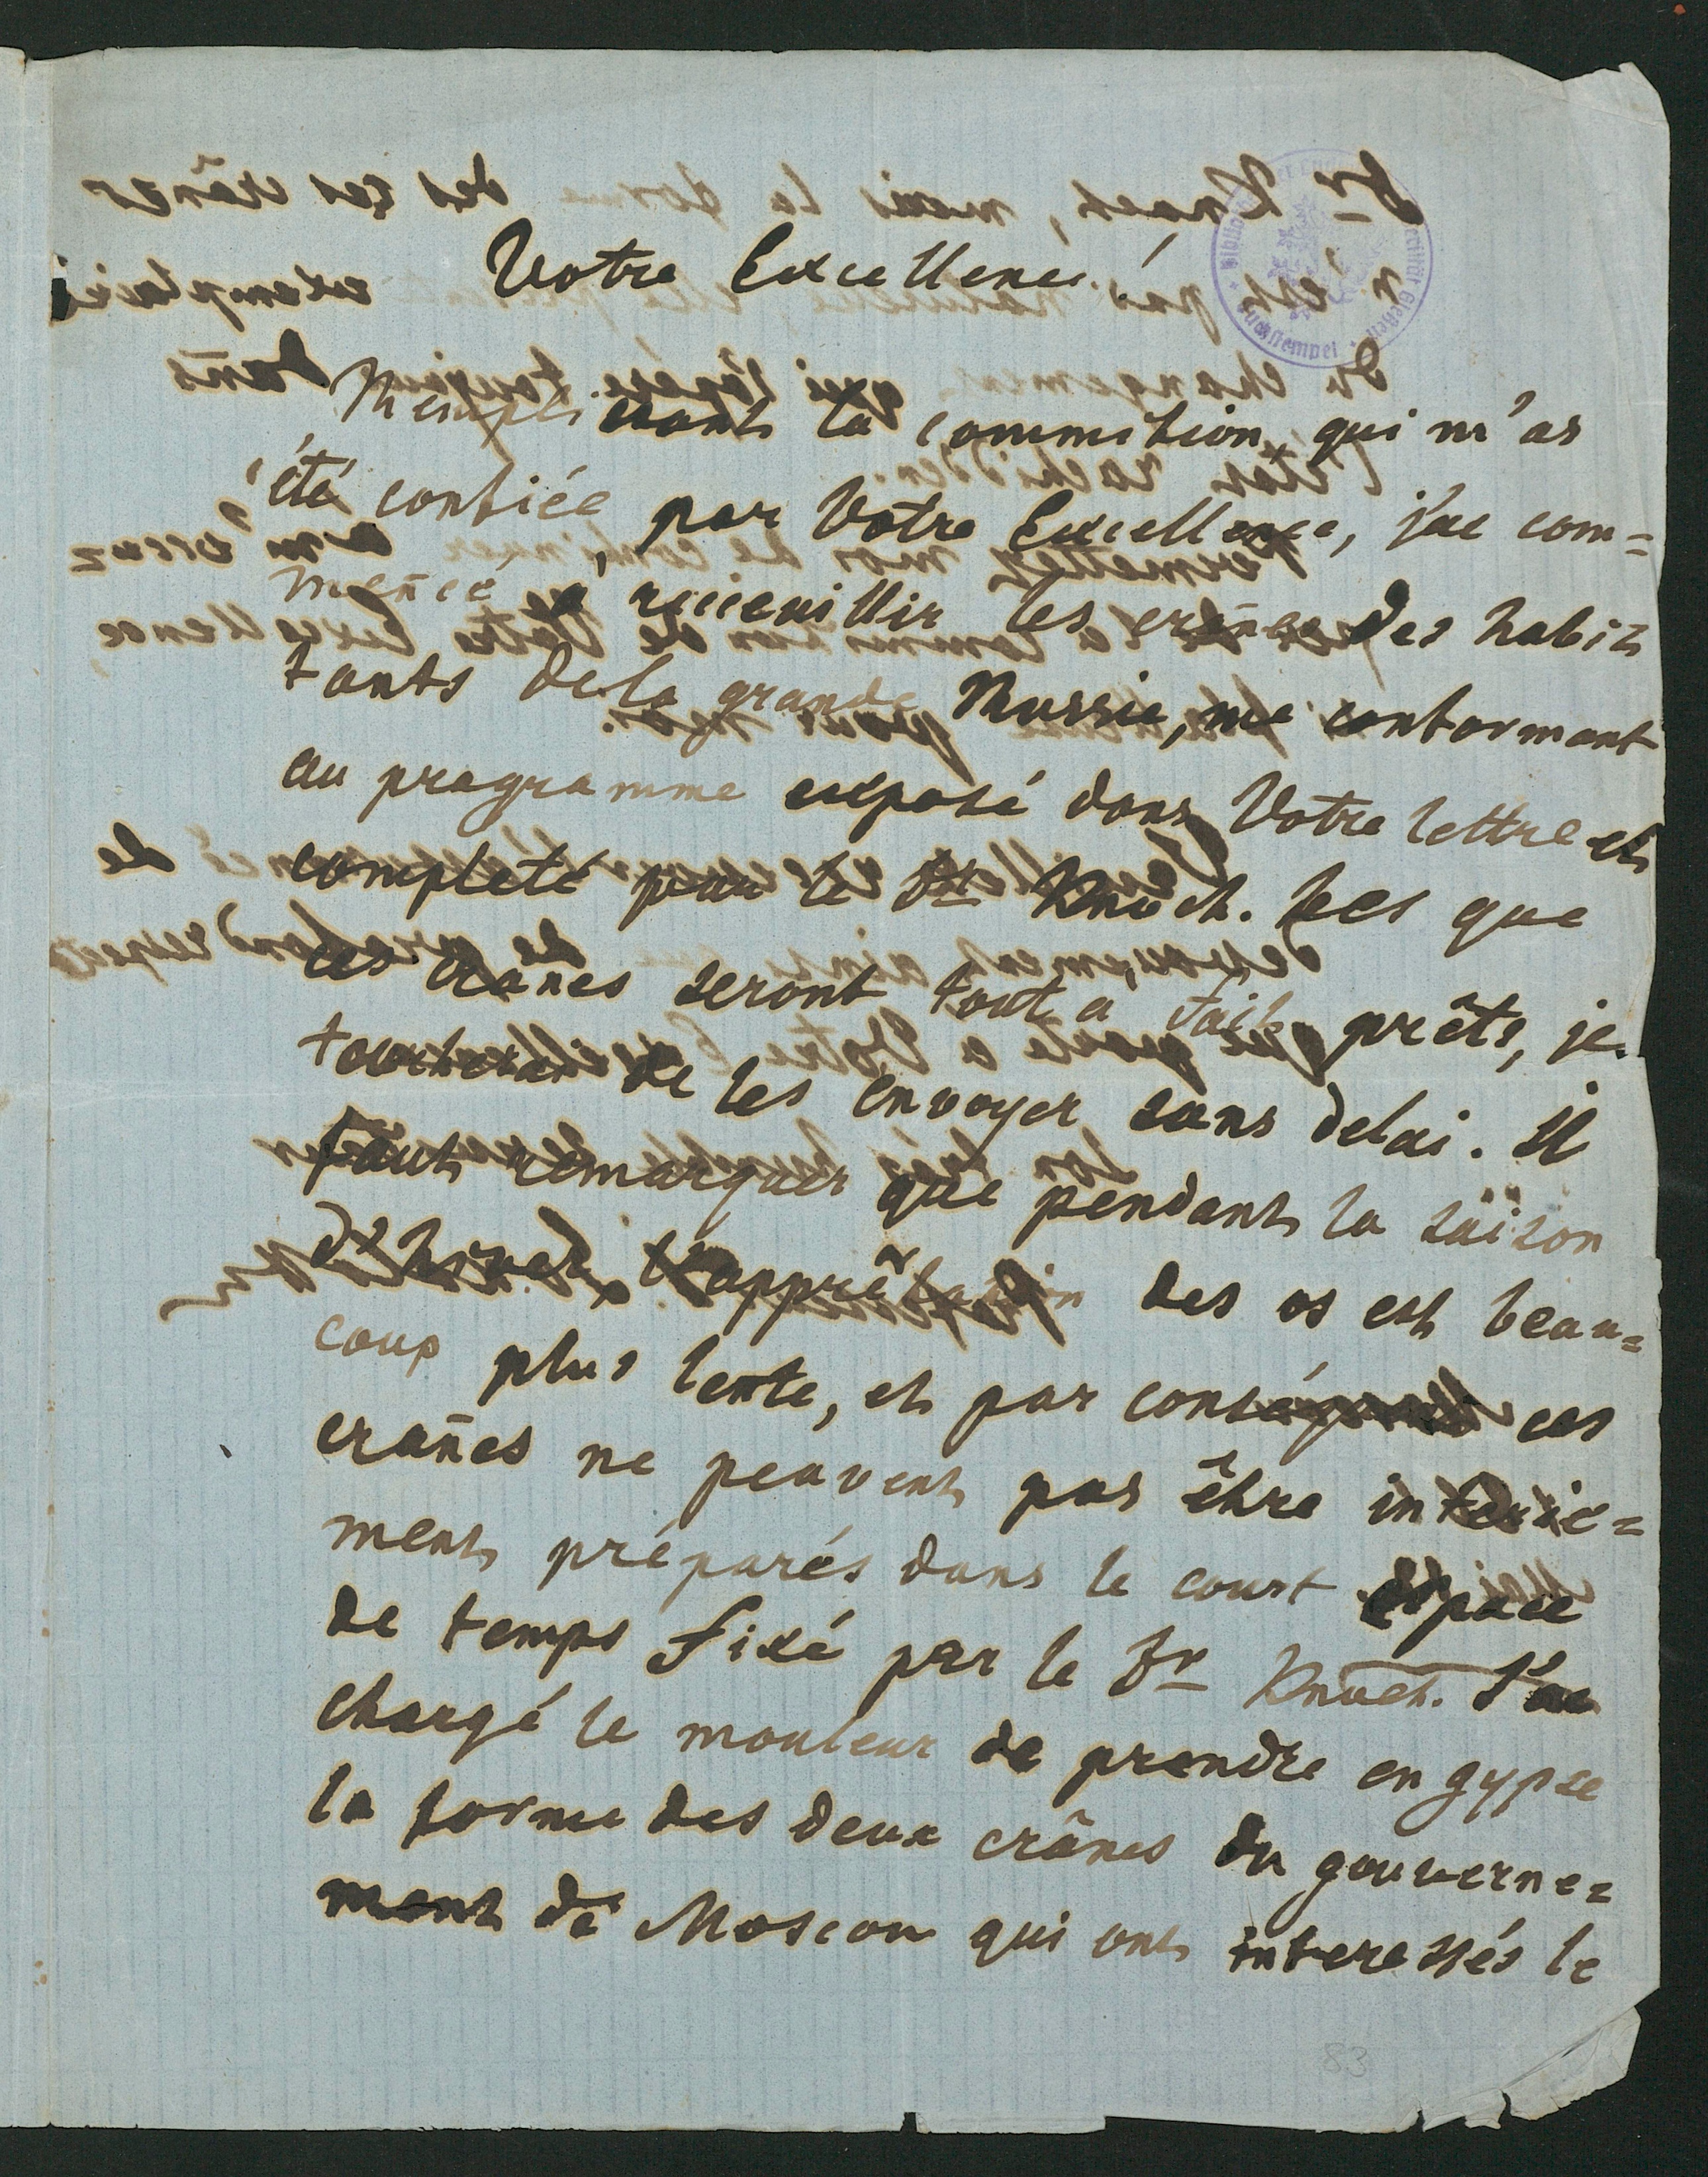 Votre Excellence!
Remplissant la commission, qui m'as
été confiée, par Votre Excellence, j'ae com=
mencé à recceuillir les crânes des habi=
tants de la grande Russie, me conformant
au programme exposé dans Votre lettre et
completé par le Dr Knoch. Les que
ces crânes seront tout a fait prêts, je
tacherai de les envoyer sans delai. Il
faut remarquer que pendant la saison
d'hiver, l'apprêtation des os est beau=
coup plus lente, et par conséquent ces
crânes ne peuvent pas être
ment préparés dans le court espace
de temps fixé par le Dr Knoch. J'ae
chargé le mouleur de prendre en gypse
la forme des deux crânes du gouverne=
ment de Moscou qui ont interessés le
83